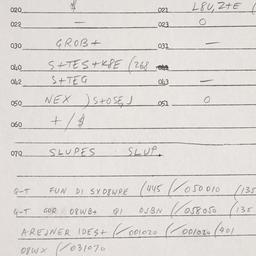 020 $ 021 L8U,Z+E (
022 — 023 O
030 GROB+ 031 —
040 S+TES+K8E (268
042 S+TEG 043 —
050 NEX ) S+OSE,J 051 O
060 +/$
070 SLUPES SLUP.
G-T FUN DI SYD8WPE (445 (/050010 (135
G-T GOR O8WB+ QI OJBN (/058050 (135
A-REJNER IDES+ (/001020 (/001020 (401
O8WX (/031070